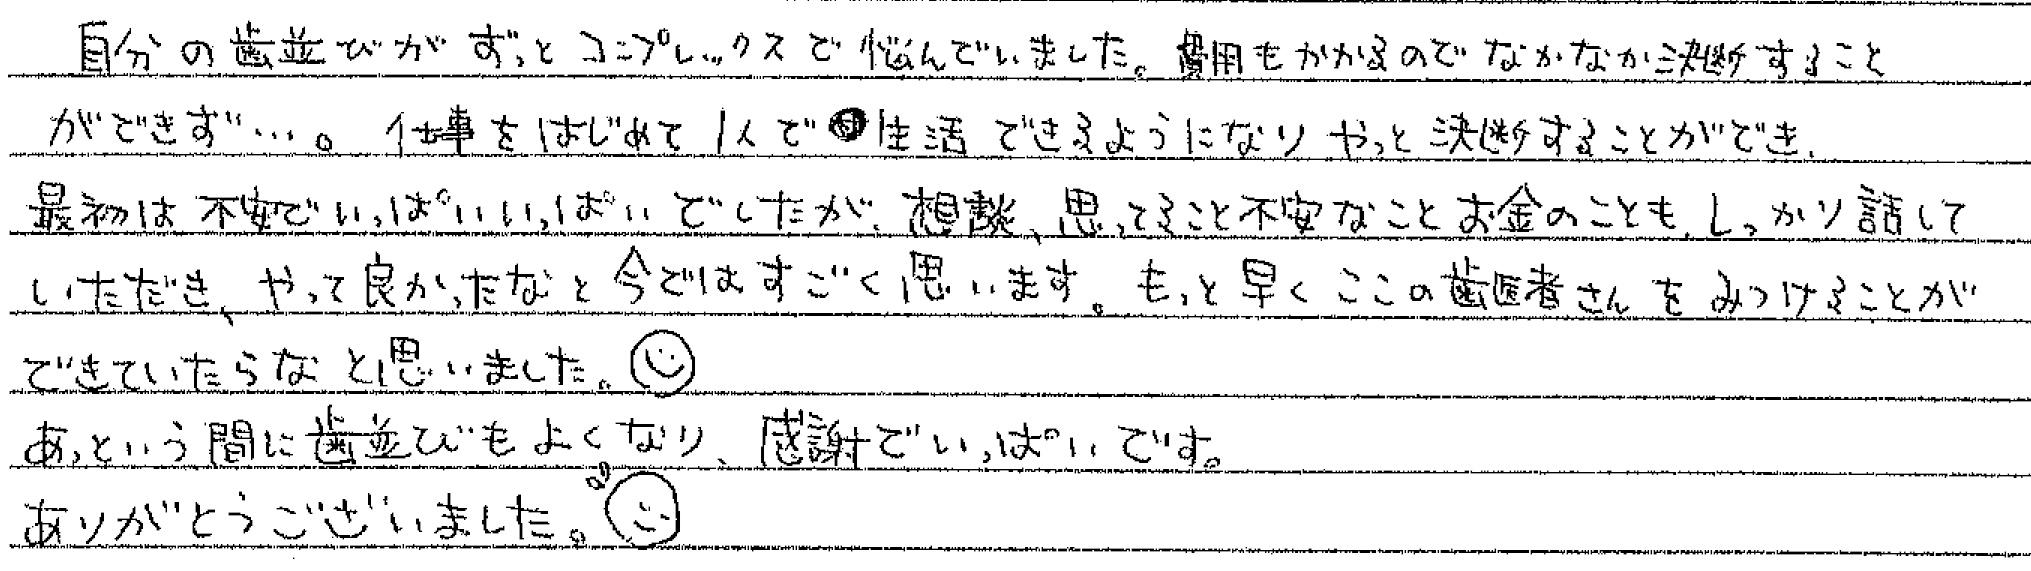 自分の歯並びがずっとコンプレックスで悩んでいました。費用もかかるのでなかなか決断すること
ができず…。仕事をはじめて1人で生活できるようになりやっと決断することができ、
最初は不安でいっぱいいっぱいでしたが、相談、思ってること不安なことお金のことも、しっかり話して
いただき、やって良かったなと今ではすごく思います。もっと早くここの歯医者さんをみつけることが
できていたらなと思いました。☺
あっという間に歯並びもよくなり、感謝でいっぱいです。
ありがとうございました。☺